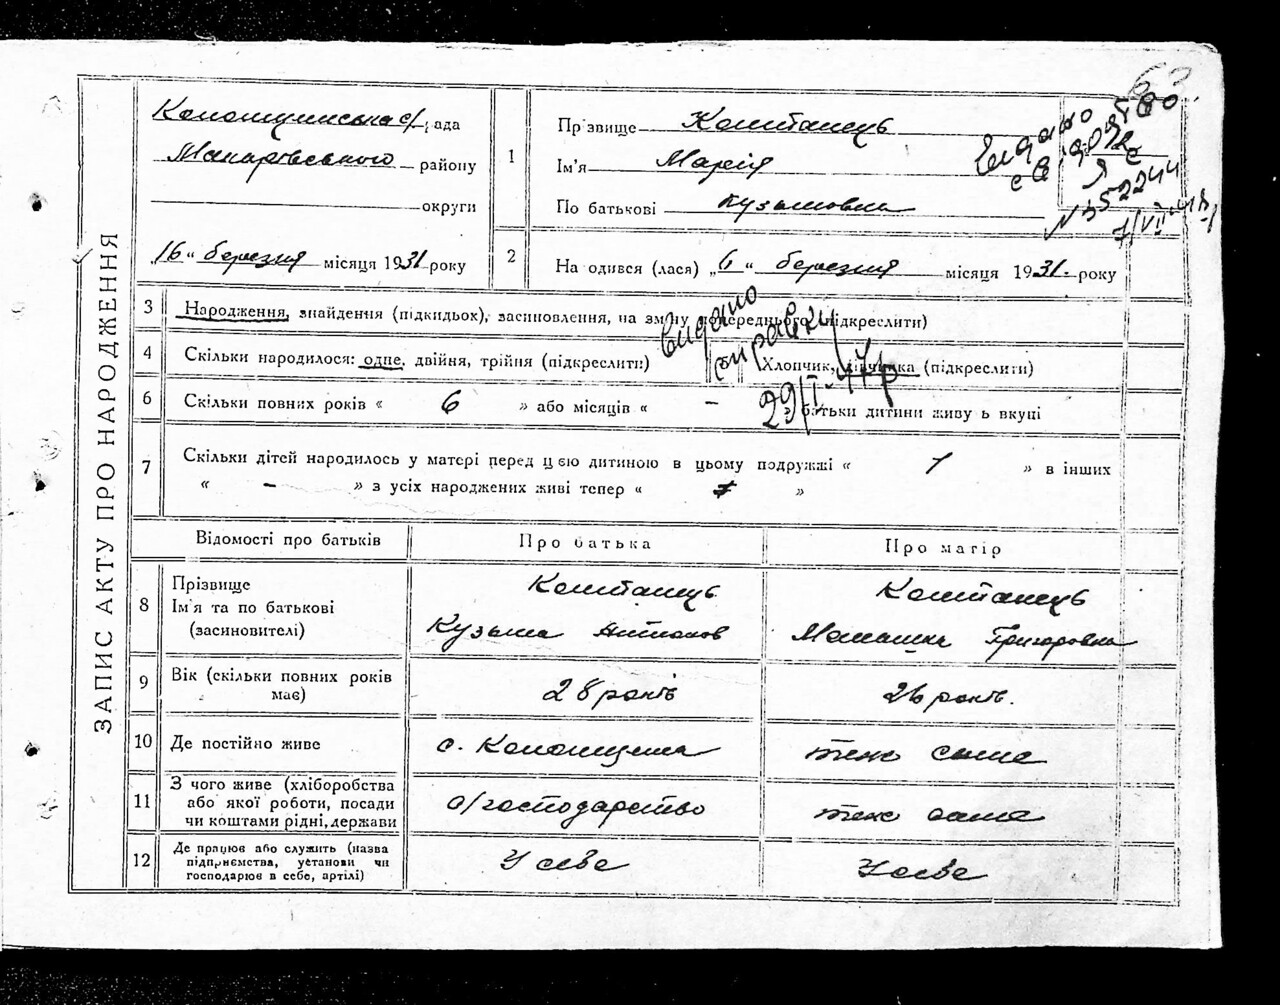 63
ЗАПИС АКТУ ПРО НАРОДЖЕННЯ
Колонщинська с/рада
Макарівського району
округи
„16“ березня місяця 1931 року
1
Прізвище Коштанець
Ім'я Марія
По батькові Кузьмовна
Видано
N 352244
2
На одився (лася) „6“ березня місяця 1931. року
3 Народження, знайдення (підкидьох), засиновлення, на зміну попереднього (підкреслити)
4 Скільки народилося: одне, двійня, трійня (підкреслити)
5 Хлопчик, дівчинка (підкреслити)
видано справку
29/I-47р
6 Скільки повних років « 6 » або місяців « – » батьки дитини живуть вкупі
7 Скільки дітей народилось у матері перед цією дитиною в цьому подружжі « 1 » в інших
« – » з усіх народжених живі тепер « »
Відомості про батьків Про батька Про матір
8 Прізвище Коштанець Коштанець
Ім'я та по батькові Кузьма Антонов Григоровна
(засиновителі)
9 Вік (скільки повних років має) 28 років 26 років.
10 Де постійно живе с. Колонщина теж саме
11 З чого живе (хліборобства або якої роботи, посади чи коштами рідні, держави с/господарство теж саме
12 Де працює або служить (назва підприємства, установи чи господарює в себе, артілі) У себе У себе